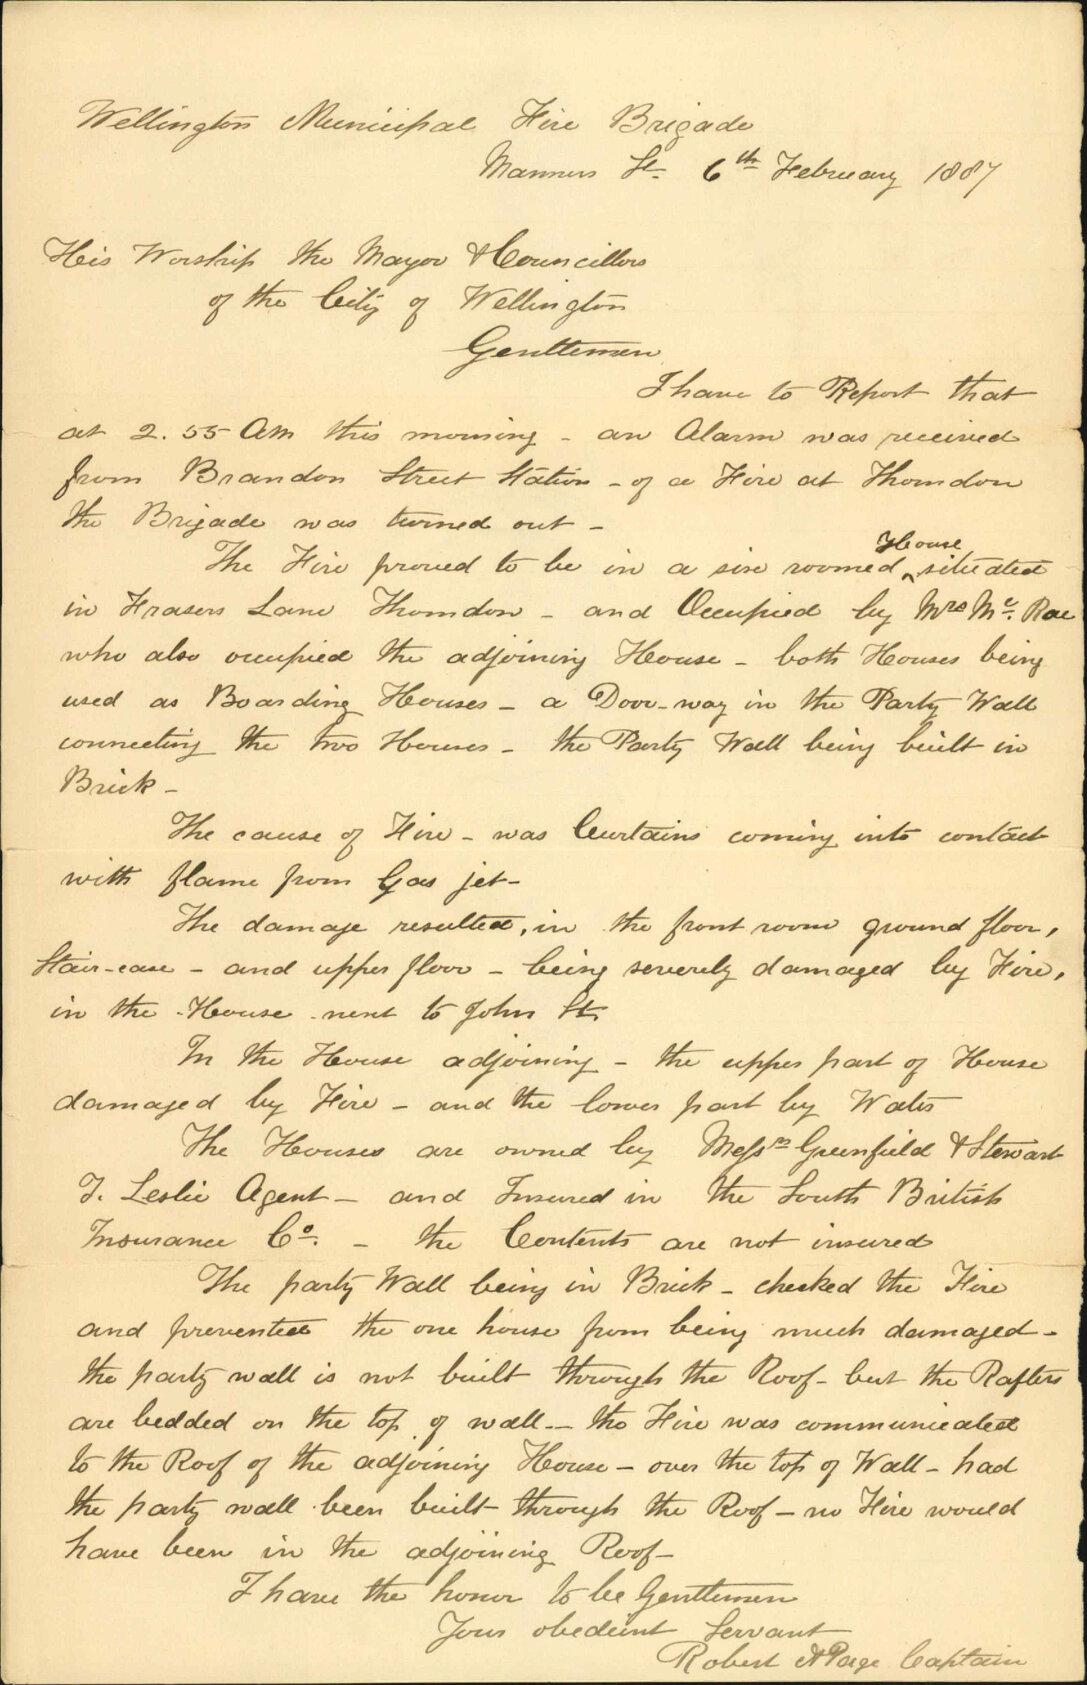 Wellington Municipal Fire Brigade
Manners St. 6th February 1887
His Worship the Mayor & Councillors
of the City of Wellington
Gentlemen
I have to Report that
at 2.55 Am this morning - an Alarm was received
from Brandon Street Station - of a Fire at Thorndon
the Brigade was turned out -
The Fire proved to be in a six roomed ^House situated
in Frasers Lane Thorndon - and Occupied by Mrs Mc. Rae
who also occupied the adjoining House - both Houses being
used as Boarding Houses - a Door-way in the Party Wall
connecting the two Houses - the Party Wall being built in
Brick -
The cause of Fire - was Curtains coming into contact
with flame from Gas jet -
The damage resulted, in the front room ground floor,
Stair-case - and upper floor - being severely damaged by Fire,
in the House next to John St.
In the House adjoining - the upper part of House
damaged by Fire - and the lower part by Water
The Houses are owned by Messrs Greenfield & Stewart
T. Leslie Agent - and Insured in the South British
Insurance Co. - the Contents are not insured
The party Wall being in Brick - checked the Fire
and prevented the one house from being much damaged -
the party wall is not built through the Roof - but the Rafters
are bedded on the top of wall - the Fire was communicated
to the Roof of the adjoining House - over the top of Wall - had
the party wall been built through the Roof - no Fire would
have been in the adjoining Roof -
I have the honor to be Gentlemen
Your obedient Servant
Robert Page Captain